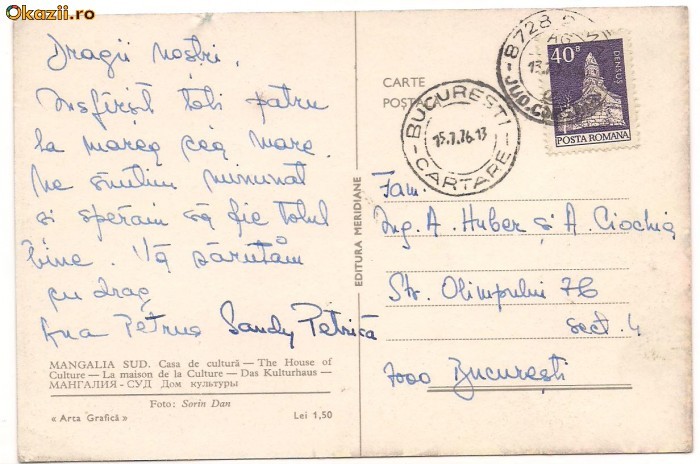 Okazii.ro
Dragii noștri,
Însfîrșit toți patru
la marea cea mare.
Ne simțim minunat
și sperăm să fie totul
bine. Vă sărutăm
cu drag
Ana Petruș Sandu Petrică
MANGALIA SUD. Casa de cultură — The House of
Culture — La maison de la Culture — Das Kulturhaus —
МАНГАЛИЯ - СУД Дом культуры
Foto: Sorin Dan
« Arta Grafică » Lei 1,50
EDITURA MERIDIANE
CARTE
BUCUREȘTI
15.7.76.13
CARTARE
8728
JUD.
40 B
DENSUȘ
POSTA ROMANA
Fam.
Ing. A. Huber și A. Ciochia
Str. Olimpului 76
sect. 4
7000 București